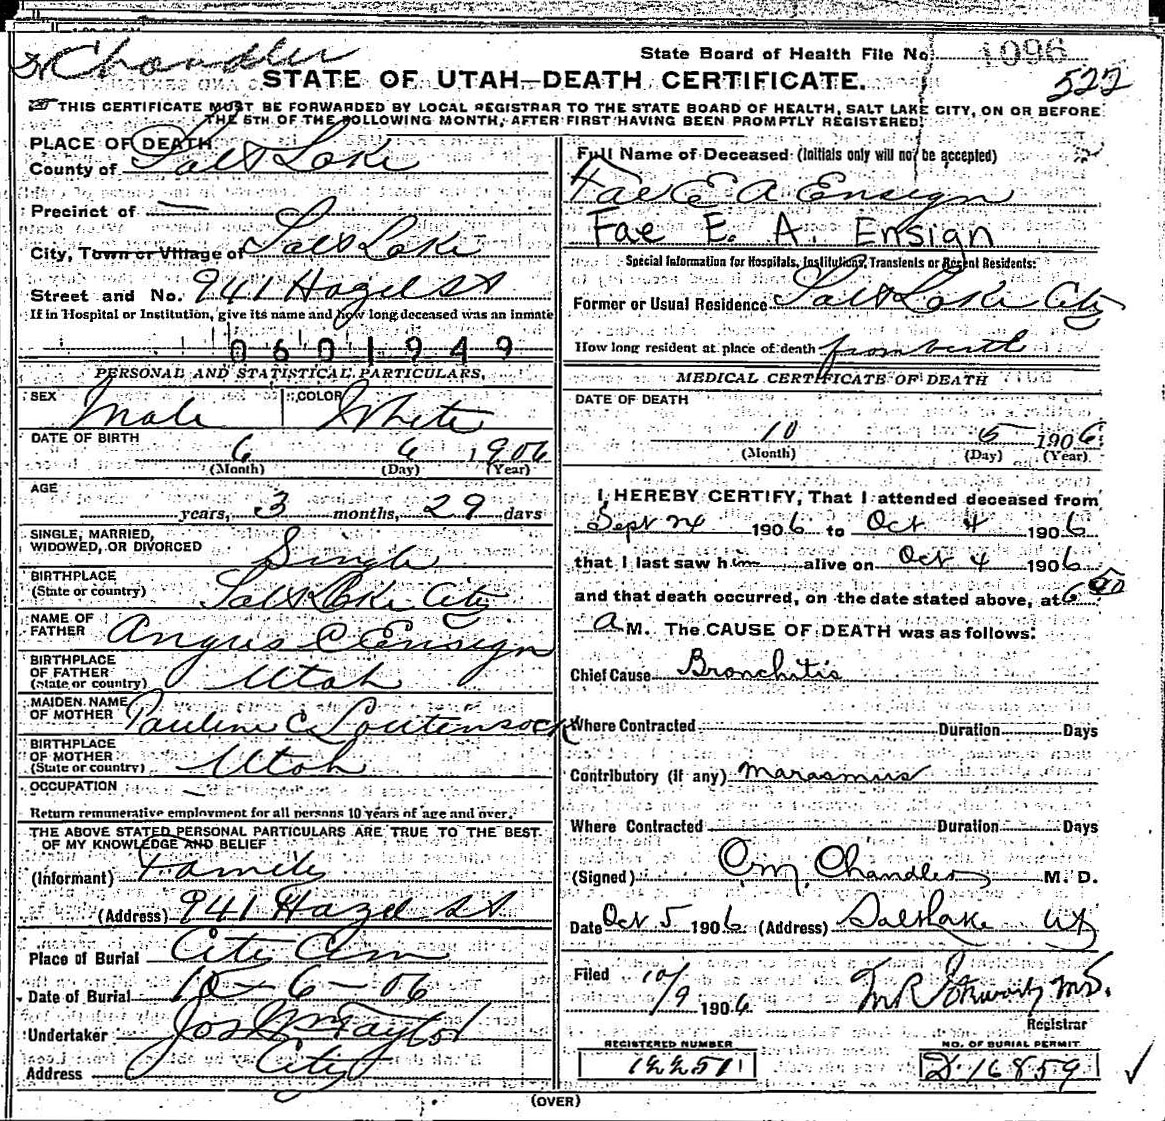 Chandler
State Board of Health File No. 1096
STATE OF UTAH—DEATH CERTIFICATE.
522
THIS CERTIFICATE MUST BE FORWARDED BY LOCAL REGISTRAR TO THE STATE BOARD OF HEALTH, SALT LAKE CITY, ON OR BEFORE
THE 5TH OF THE FOLLOWING MONTH, AFTER FIRST HAVING BEEN PROMPTLY REGISTERED.
PLACE OF DEATH
County of Salt Lake
Precinct of —
City, Town or Village of Salt Lake
Street and No. 941 Hazel St
If in Hospital or Institution, give its name and how long deceased was an inmate
0601949
PERSONAL AND STATISTICAL PARTICULARS.
SEX Male COLOR White
DATE OF BIRTH 6 6 1906
(Month) (Day) (Year)
AGE years, 3 months, 29 days
SINGLE, MARRIED,
WIDOWED, OR DIVORCED Single
BIRTHPLACE
(State or country) Salt Lake City
NAME OF
FATHER Angus C Ensign
BIRTHPLACE
OF FATHER
(State or country) Utah
MAIDEN NAME
OF MOTHER Pauline C Loutensock
BIRTHPLACE
OF MOTHER
(State or country) Utah
OCCUPATION —
Return remunerative employment for all persons 10 years of age and over.
THE ABOVE STATED PERSONAL PARTICULARS ARE TRUE TO THE BEST
OF MY KNOWLEDGE AND BELIEF
(Informant) Family
(Address) 941 Hazel St
Place of Burial City Cem
Date of Burial 10-6-06
Undertaker Jos Wm Taylor
Address City
Full Name of Deceased (Initials only will not be accepted)
Fae E A Ensign
Fae E. A. Ensign
Special Information for Hospitals, Institutions, Transients or Recent Residents:
Former or Usual Residence Salt Lake City
How long resident at place of death from birth
MEDICAL CERTIFICATE OF DEATH
DATE OF DEATH
10 5 1906
(Month) (Day) (Year)
I, HEREBY CERTIFY, That I attended deceased from
Sept 24 1906 to Oct 4 1906
that I last saw him alive on Oct 4 1906
and that death occurred, on the date stated above, at 6
A M. The CAUSE OF DEATH was as follows:
Chief Cause Bronchitis
Where Contracted Duration Days
Contributory (if any) Marasmus
Where Contracted Duration Days
(Signed) C. M. Chandler M. D.
Date Oct 5 1906 (Address) Salt Lake Ut
Filed 10/9 1906 M.D.
Registrar
REGISTERED NUMBER NO. OF BURIAL PERMIT
12251 D. 16859
(OVER)